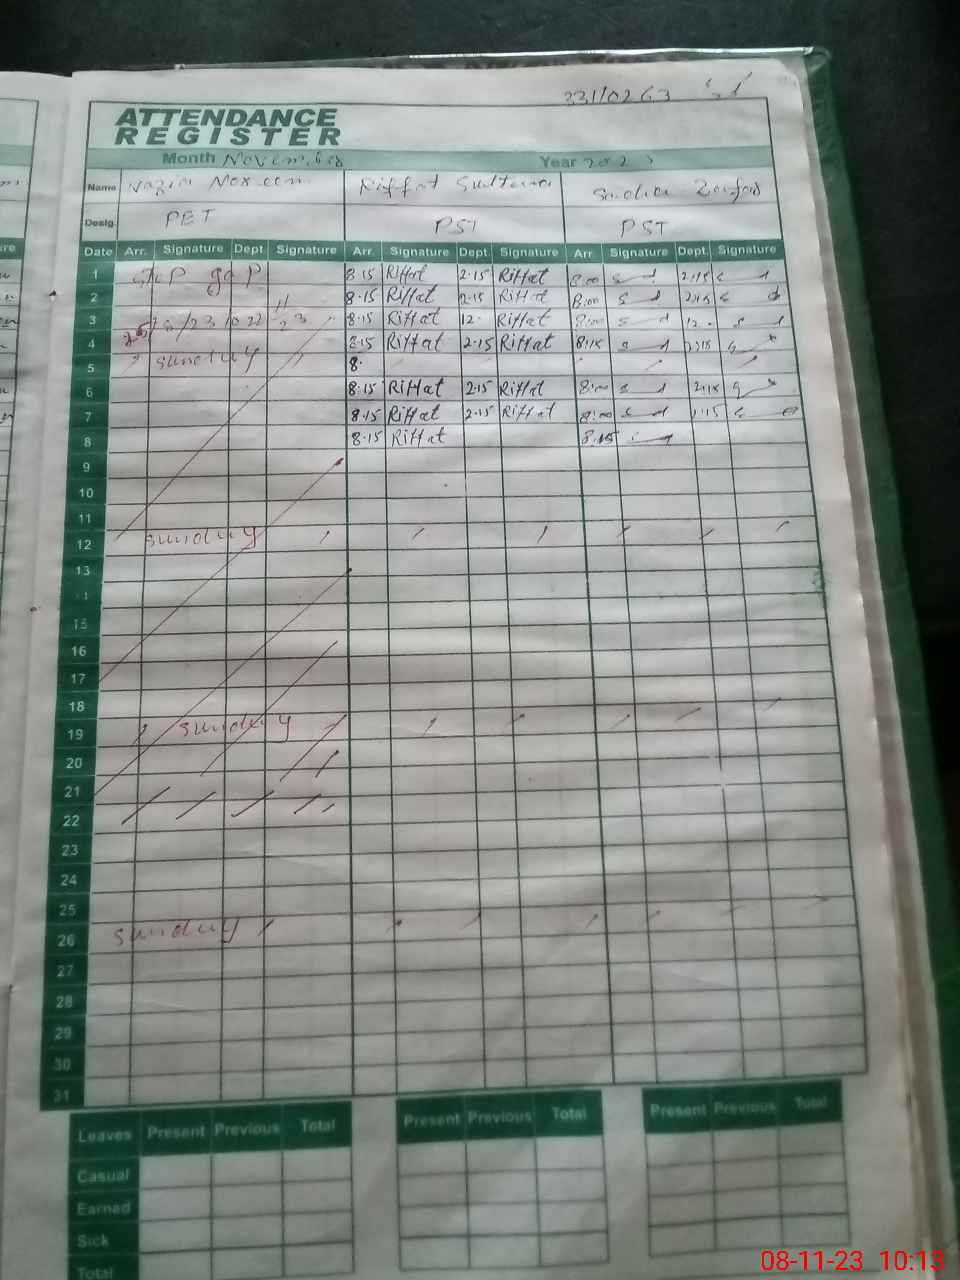 33110263
ATTENDANCE
REGISTER
Month November Year 2023
Name Nazia Noreen Riffat Sultana Sadia
Desig. PET PST PST
Date Arr. Signature Dept Signature Arr. Signature Dept. Signature Arr Signature Dept. Signature
1 8.15 Riffat 2.15 Riffat 8:00 2.15
2 8.15 Riffat 2.15 Riffat 8:00 2.15
3 8.15 Riffat 12. Riffat 8:00 12.
4 8.15 Riffat 2.15 Riffat 8.15 2.15
5 sunday 8.
6 8.15 Riffat 2.15 Riffat 8:00 2.15
7 8.15 Riffat 2.15 Riffat 8:00
8 8.15 Riffat 8.15
9
10
11
12 sunday
13
15
16
17
18
19 sunday
20
21
22
23
24
25
26 sunday
27
28
29
30
31
Leaves Present Previous Total Present Previous Total Present Previous Total
Casual
Earned
Sick
Total
08-11-23 10:13